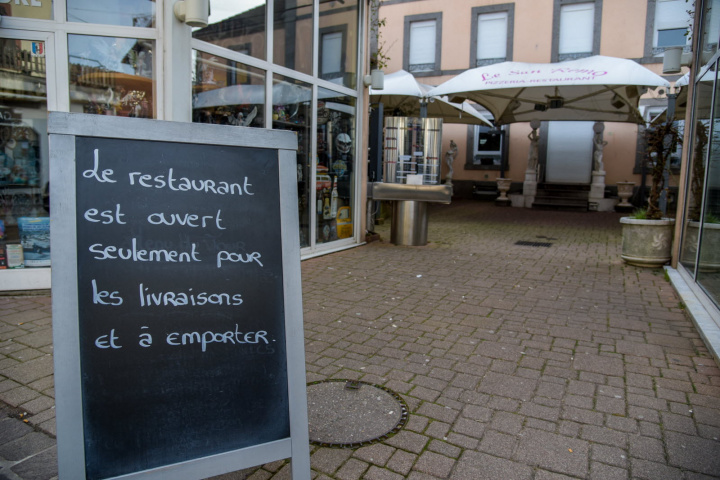 Le San Remo
PIZZERIA-RESTAURANT
Le restaurant
est ouvert
seulement pour
les livraisons
et à emporter.